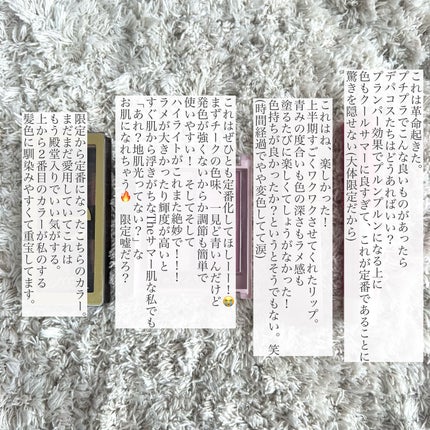 これは革命起きた。
プチプラでこんな良いものがあったら
デパコスたちはどうあればいい？
プランパー効果でプルンプルンになる上に
色もクールサマーに良すぎて、これが定番であることに
驚きを隠せない(大体限定だから)
これはね、楽しかった！
上半期すごくワクワクさせてくれたリップ。
青みの度合いも色の深さもラメ感も
塗るたびに楽しくてしょうがなかった！
色持ちが良かったか？というとそうでもない。笑
(時間経過でやや変色してく涙)
これはぜひとも定番化してほしーーー！😭
まずチークの色味、一見ど青いんだけど
発色が強くないから力調節も簡単で
使いやすい！　そしてそして
ハイライトがこれまた絶妙で！！！
ラメが大きかったり輝度が高いと
すぐ肌から浮きがちなTrueサマー肌な私でも
「あれ？地肌光ってない？」な
お肌になれちゃう🔥　限定嘘だろ？
限定から定番になったこちらのカラー。
まだまだ愛用していてこれは
もう殿堂入りでいい気がする。
上から2番目のカラーが私のする
髪色に馴染みやすくて重宝してます。